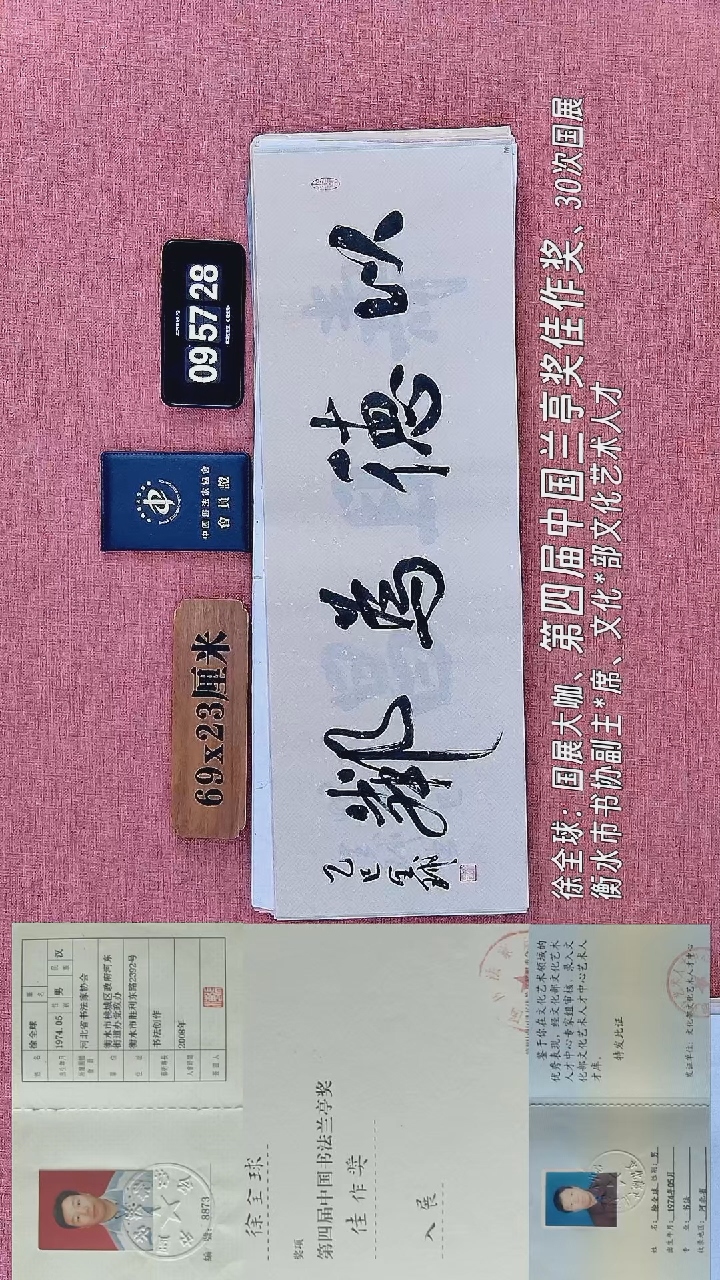 09 57 28
中国書法家協會
會員證
69x23厘米
以德為鄰
乙巳全球
徐全球：国展大咖、第四届中国兰亭奖佳作奖、30次国展
衡水市书协副主*席、文化*部文化艺术人才
编号：8873
姓名 徐全球
1974.05 男 汉
河北省书法家协会
衡水市桃城区政府河东
街道办党政办
衡水市胜利东路2292号
书法创作
2008年
徐全球
奖项
第四届中国书法兰亭奖
佳作奖
入展
姓名：徐全球 性别：男
出生年月：1974年05月
专业：书法
鉴于你在文化艺术领域的
优秀表现，经文化部文化艺术
人才中心专家组审核，录入文
化部文化艺术人才中心艺术人
才库。
特发此证
发证单位：文化部文化艺术人才中心